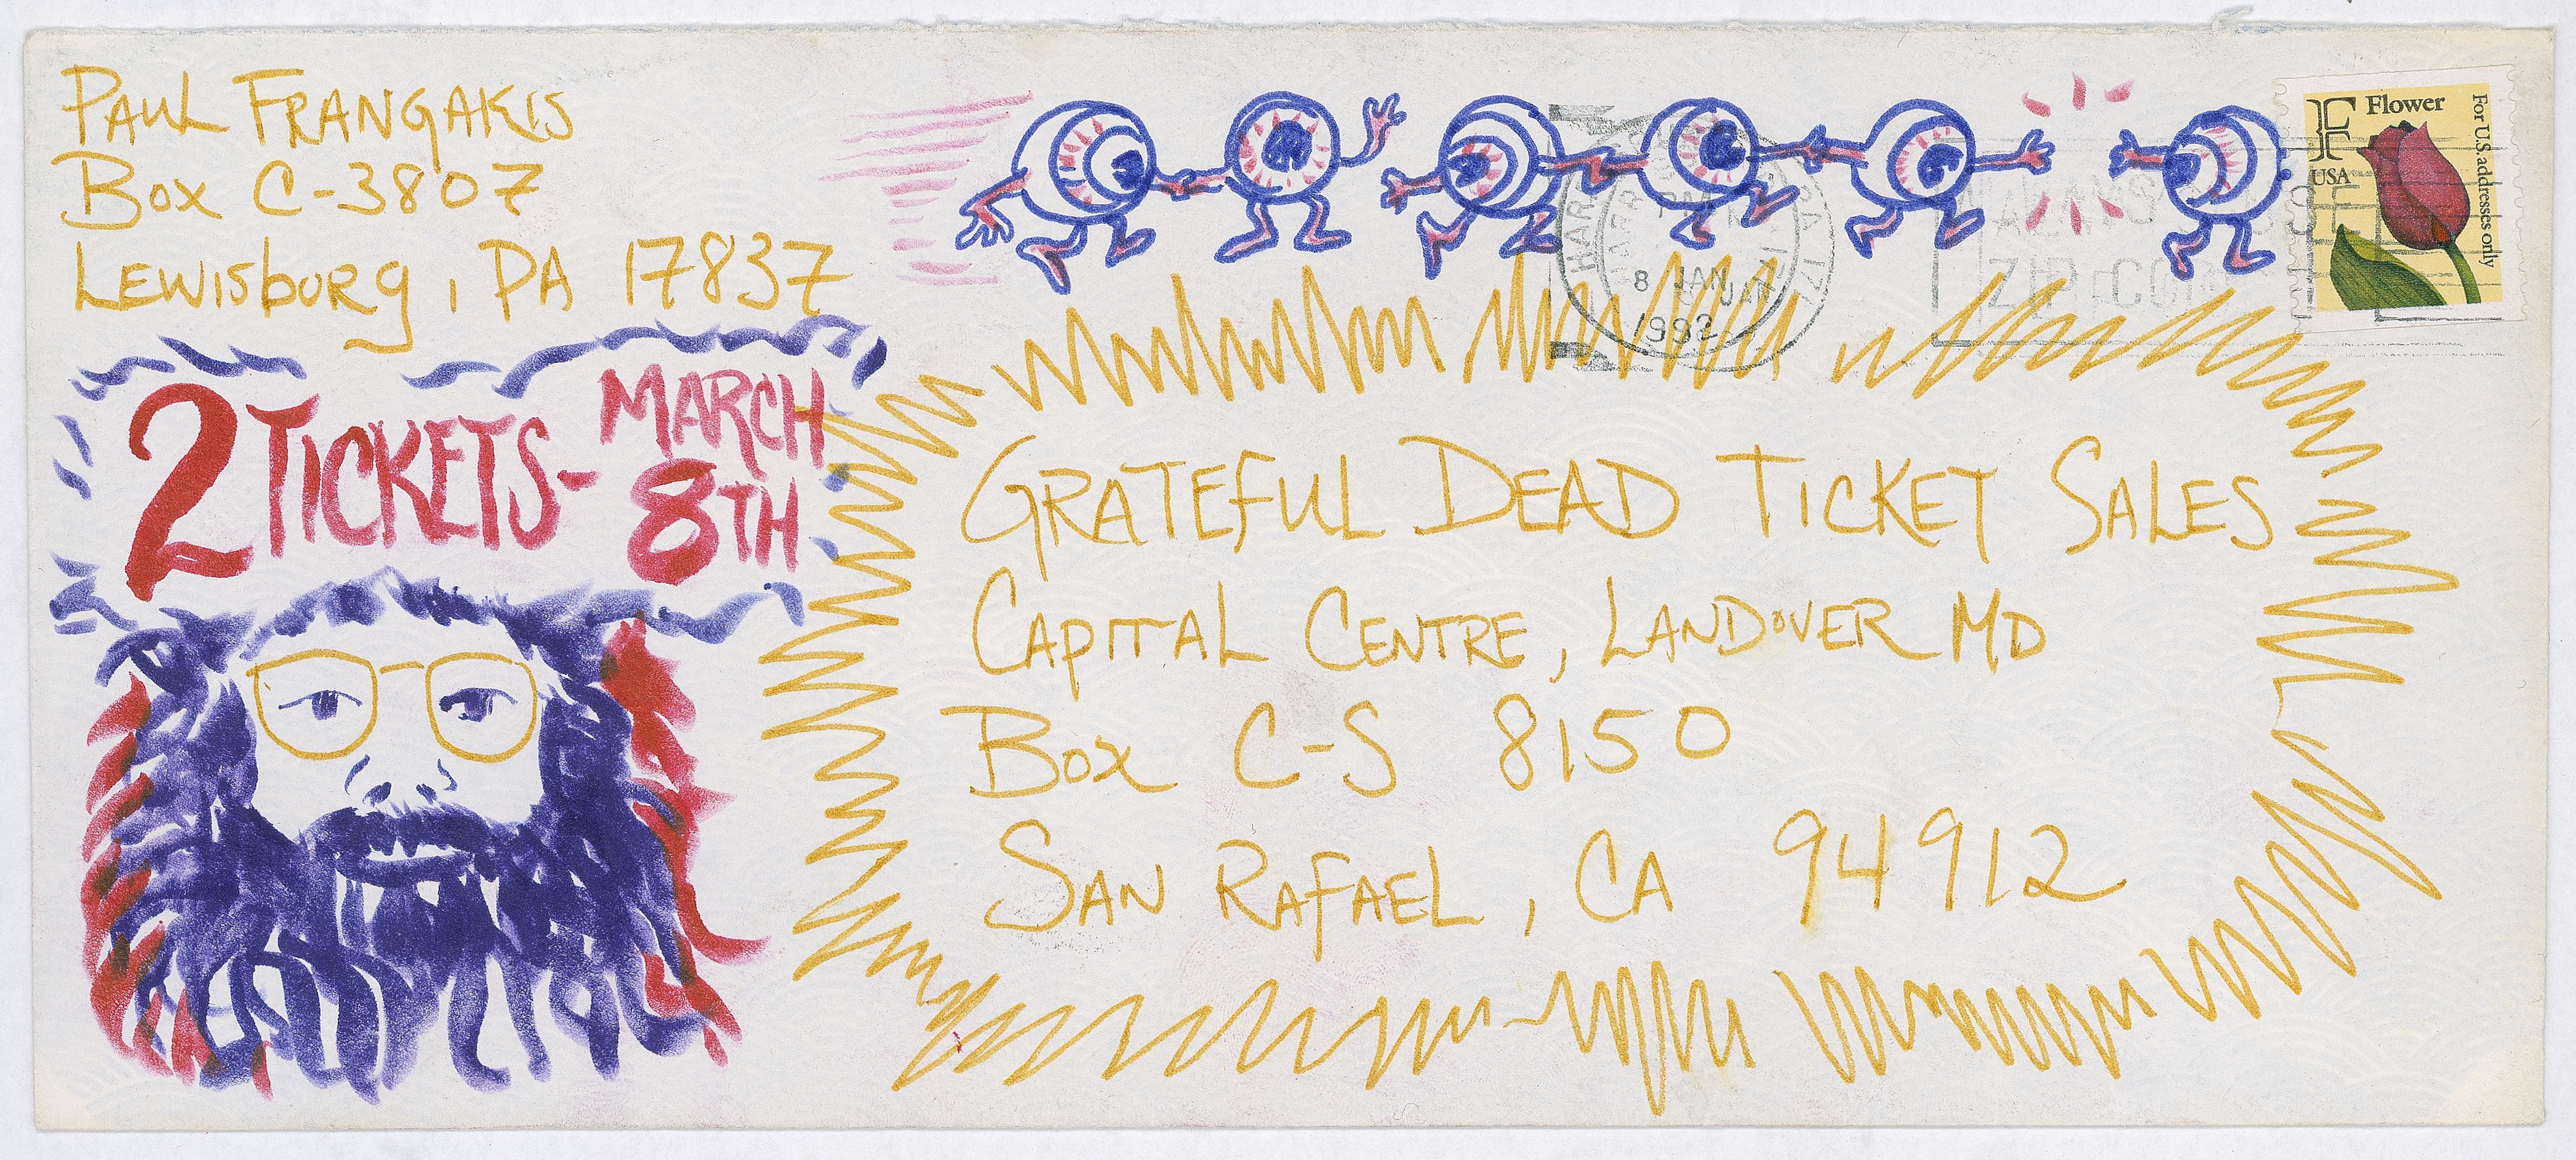 Paul Frangakis
Box C-3807
Lewisburg, PA 17837
2 Tickets - March 8th
Grateful Dead Ticket Sales
Capital Centre, Landover MD
Box C-S 8150
San Rafael, CA 94912
F Flower
USA
For U.S. addresses only
PM
8 JAN
1992
ZIP CODE